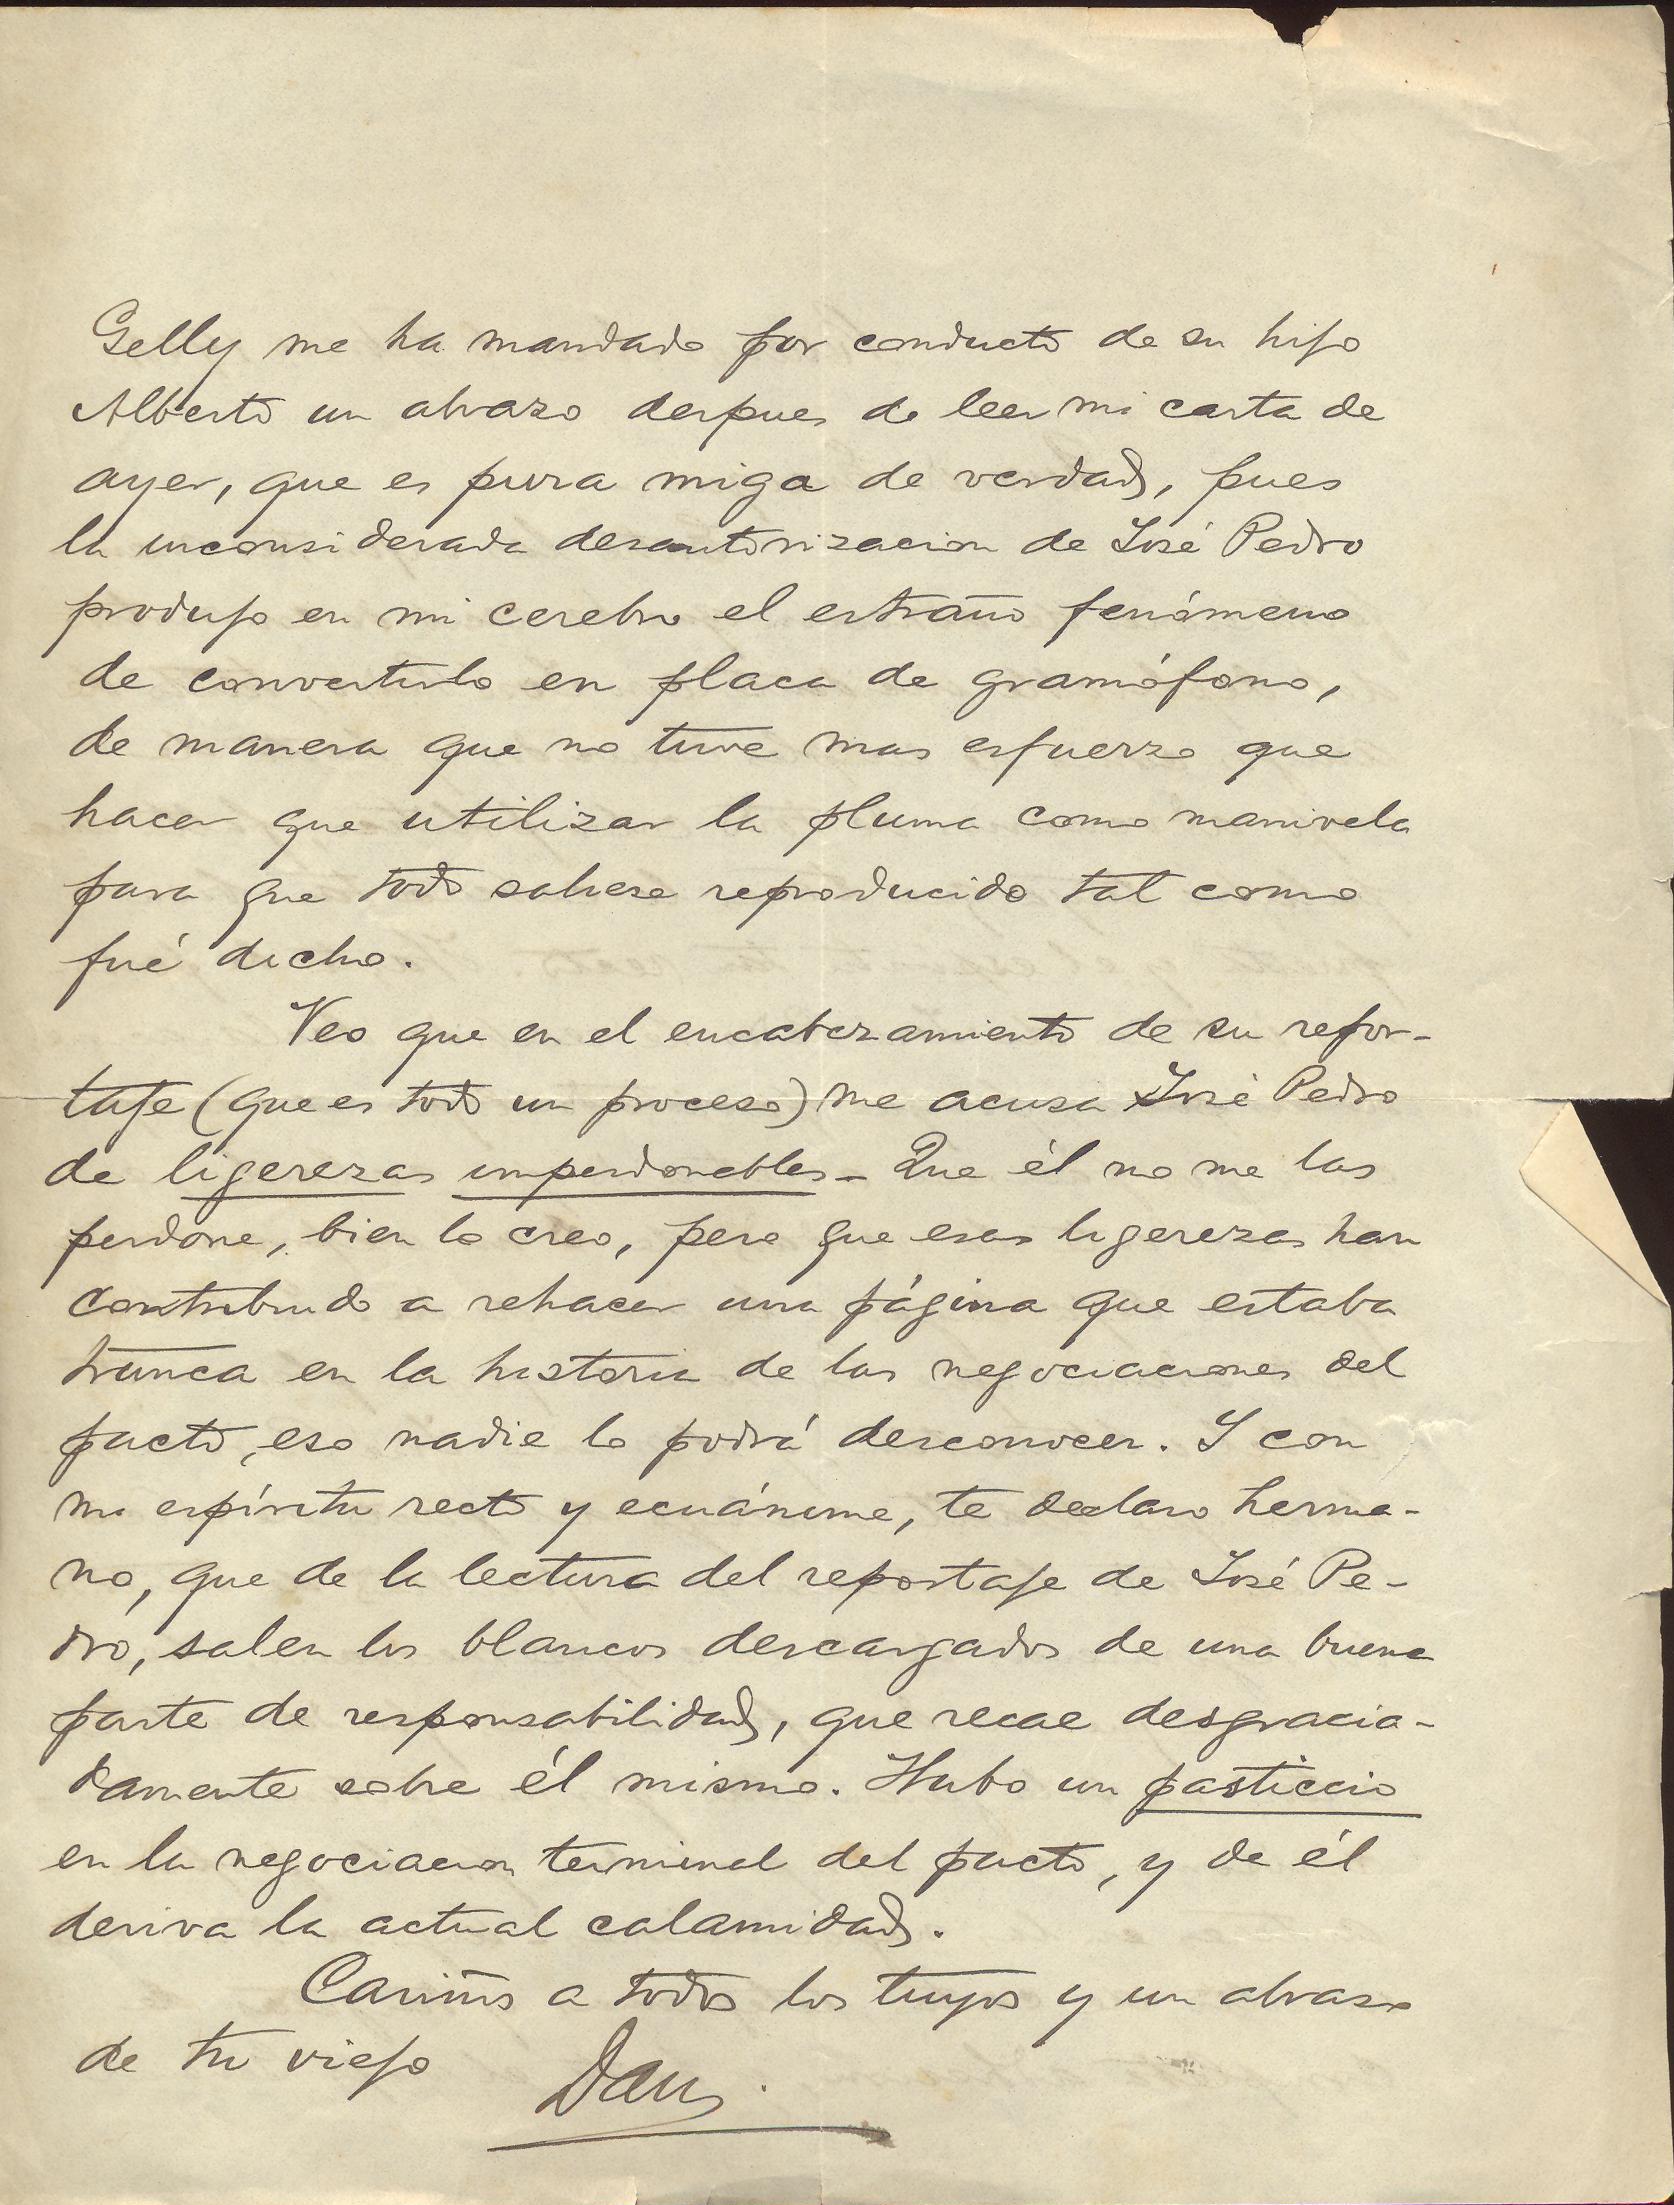 Gelly me ha mandado por conducto de su hijo
Alberto un abrazo despues de leer mi carta de
ayer, que es pura miga de verdad, pues
la inconsiderada desautorizacion de José Pedro
produjo en mi cerebro el estraño fenómeno
de convertirlo en placa de gramófono,
de manera que no tuve mas esfuerzo que
hacer que utilizar la pluma como manivela
para que todo saliese reproducido tal como
fué dicho.
Veo que en el encabezamiento de su repor-
taje (que es todo un proceso) me acusa José Pedro
de ligerezas imperdonables - Que él no me las
perdone, bien lo creo, pero que esas ligerezas han
contribuido a rehacer una página que estaba
trunca en la historia de las negociaciones del
pacto, eso nadie lo podrá desconocer. Y con
mi espíritu recto y ecuánime, te declaro herma-
no, que de la lectura del reportaje de José Pe-
dro, salen los blancos descargados de una buena
parte de responsabilidad, que recae desgracia-
damente sobre él mismo. Hubo un pasticcio
en la negociacion terminal del pacto, y de él
deriva la actual calamidad.
Cariños a todos los tuyos y un abrazo
de tu viejo